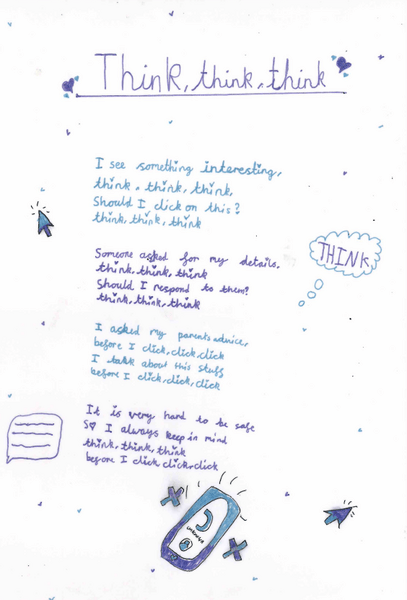 Think, think, think
I see something interesting,
think, think, think,
Should I click on this?
think, think, think
THINK
Someone asked for my details.
think, think, think
Should I respond to them?
think, think, think
I asked my parents advice,
before I click, click, click
I talk about this stuff
before I click, click, click
It is very hard to be safe
So I always keep in mind
think, think, think
before I click, click, click